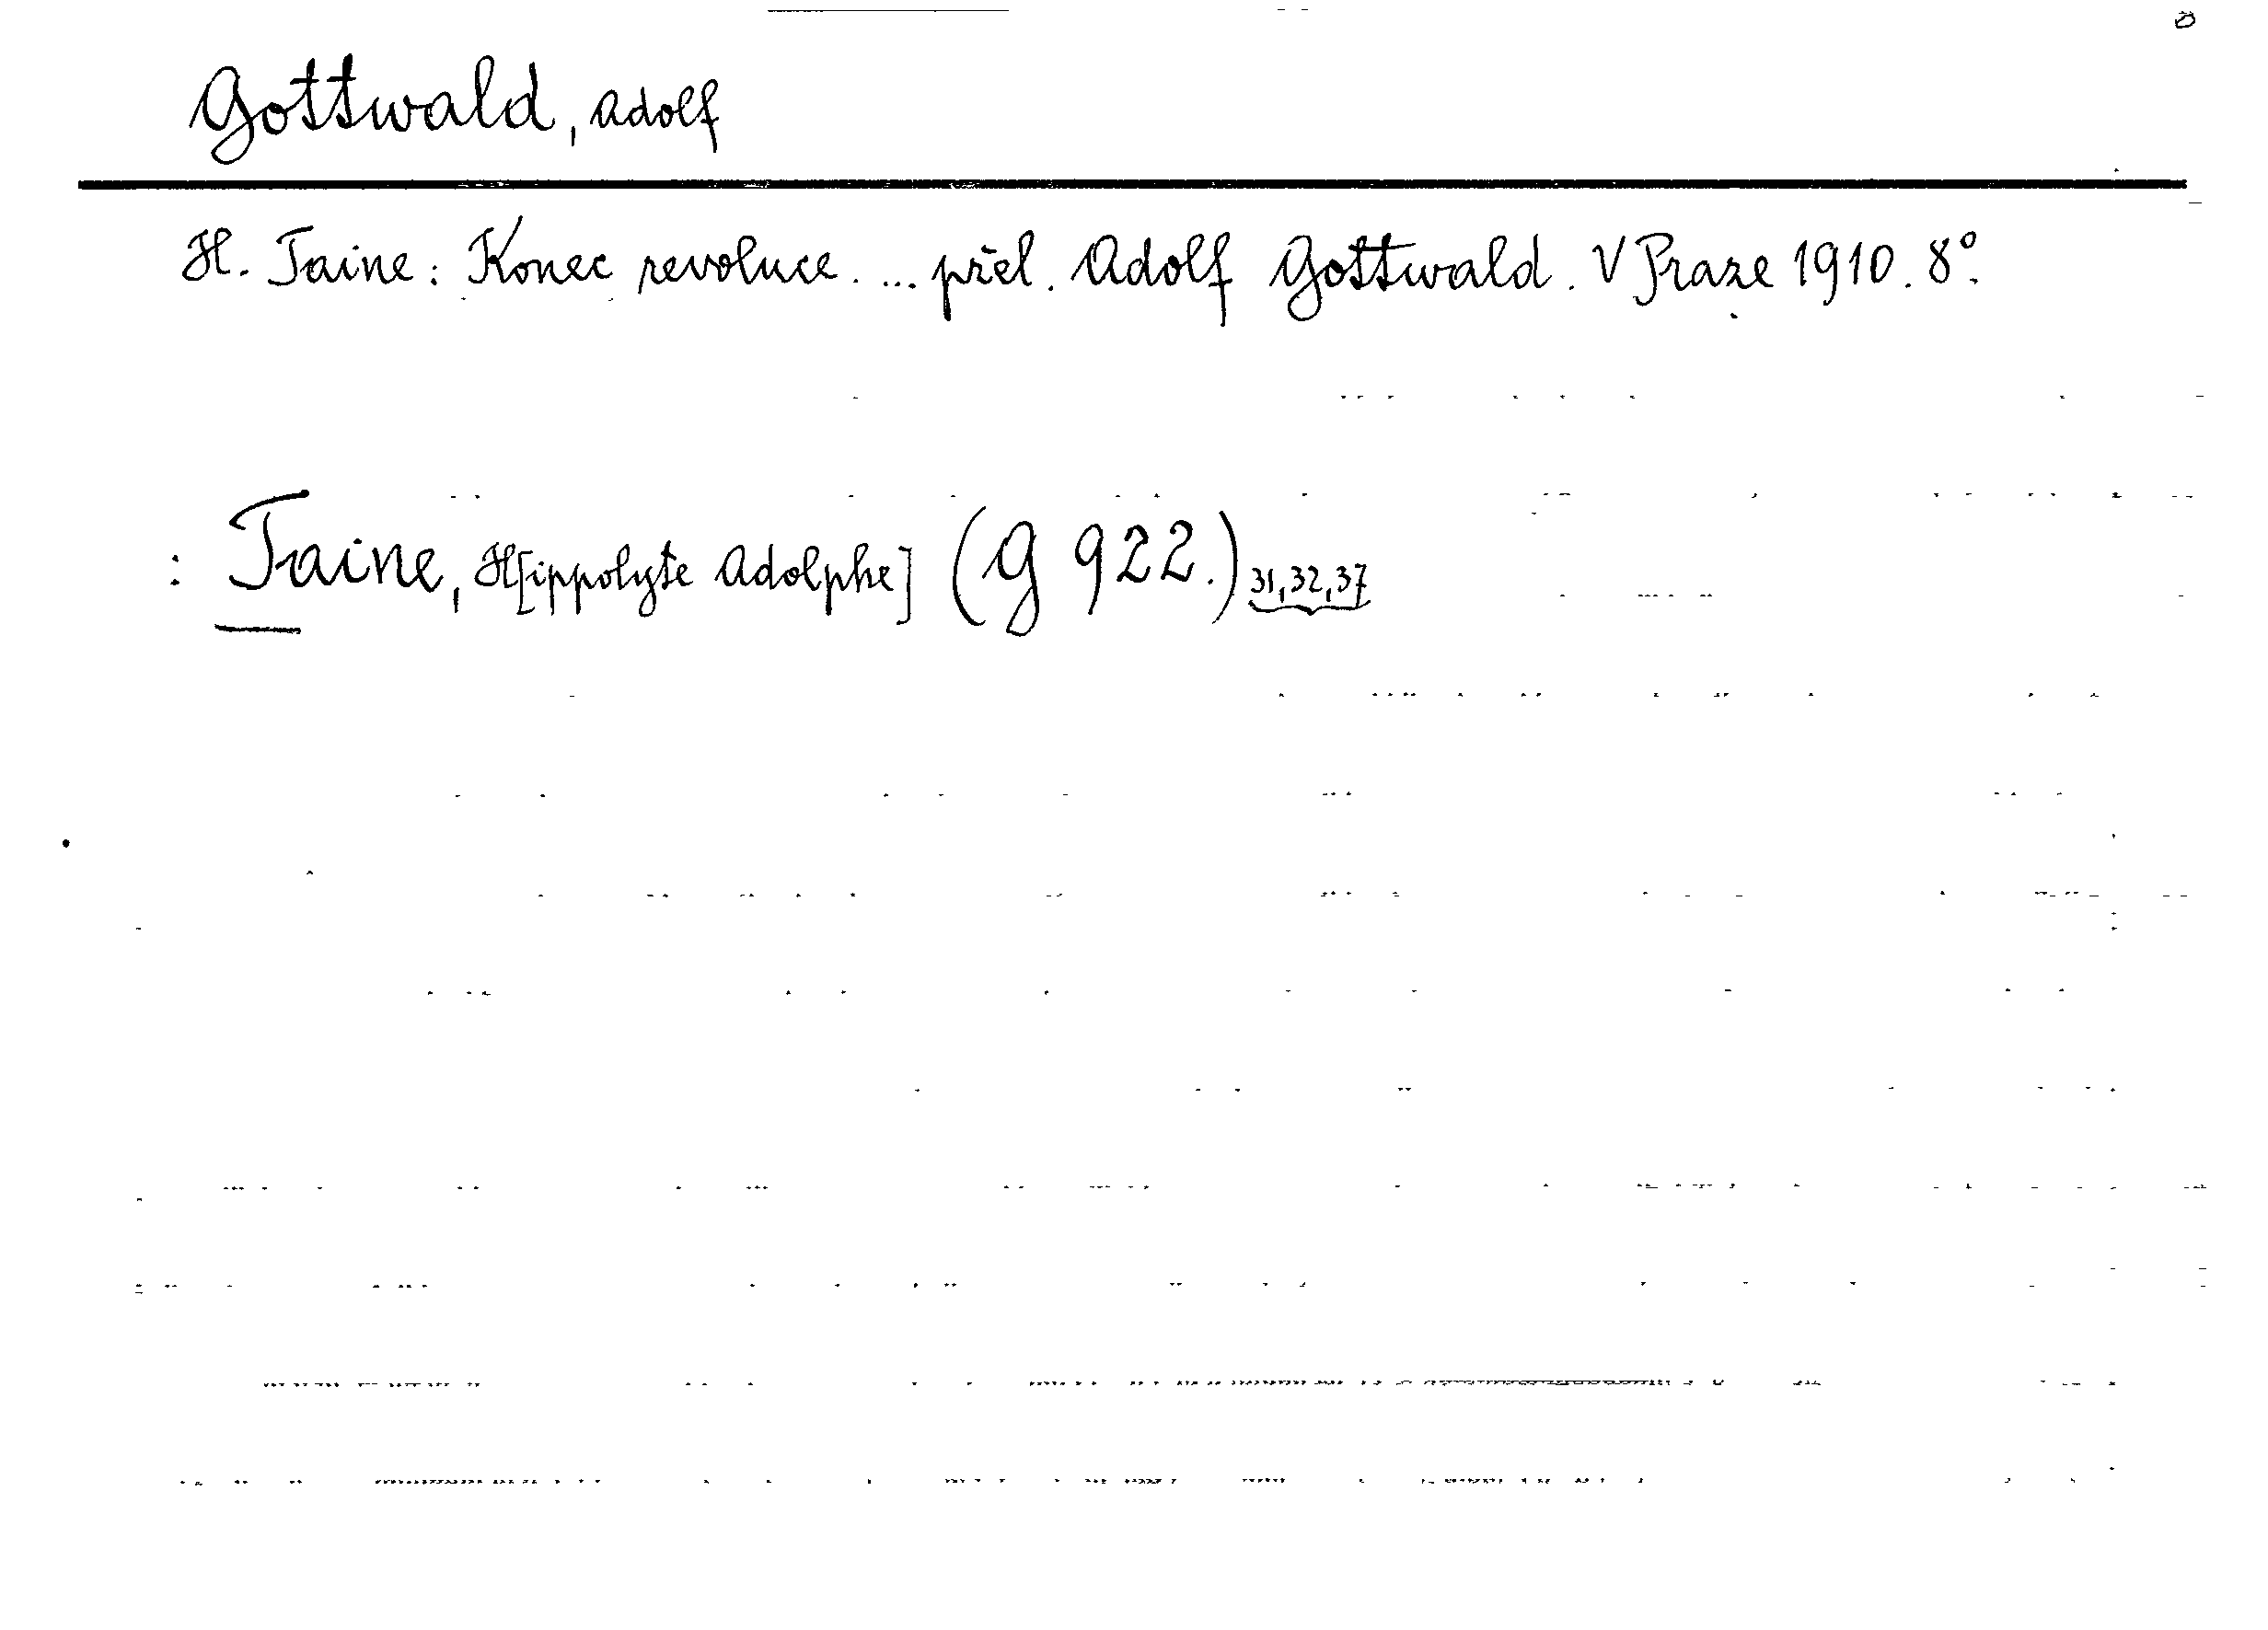 Gottwald, Adolf
H. Taine: Konec revoluce. ... přel. Adolf Gottwald. V Praze 1910. 8°.
: Taine, H[ippolyte Adolphe] (G 922.) 31, 32, 37